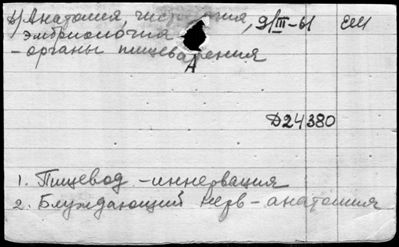 Анатомия, гистология, 9/III-61 ЕМ
эмбриология
- органы пищеварения
А
Д24380
1. Пищевод - иннервация
2. Блуждающий нерв - анатомия